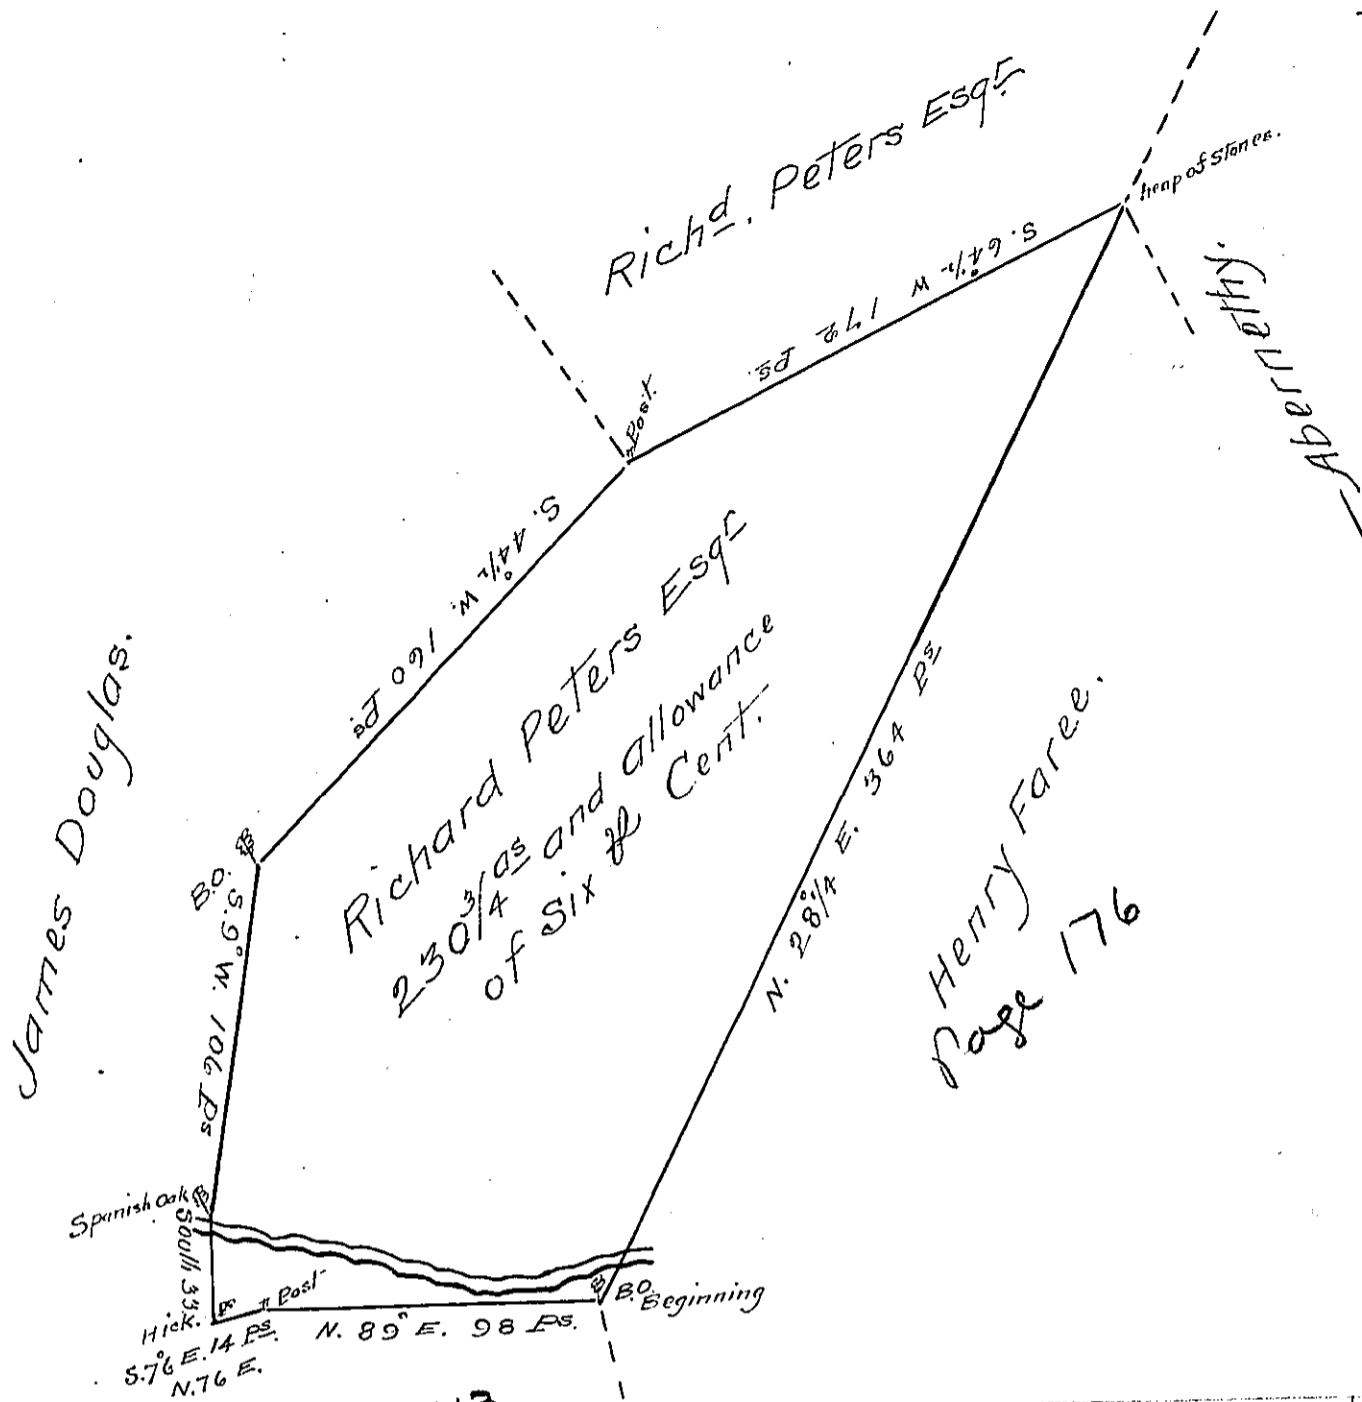 Richd. Peters Esqr.
heap of Stones.
Abernethy.
S. 64°1/2 W 172 Ps.
Post.
S. 44°1/2 W. 160 Ps.
James Douglas.
Richard Peters Esqr
230 3/4 as and allowance
of Six ⅌ Cent.
N. 28°1/4 E. 364 Ps
Henry Faree.
Page 176
B.O.
S. 9° W. 106 Ps
Spanish Oak
South 33
Ps
Hick.
Post
B.O.
Beginning
N. 89° E. 98 Ps.
S. 76° E. 14 Ps.
N. 76 E.